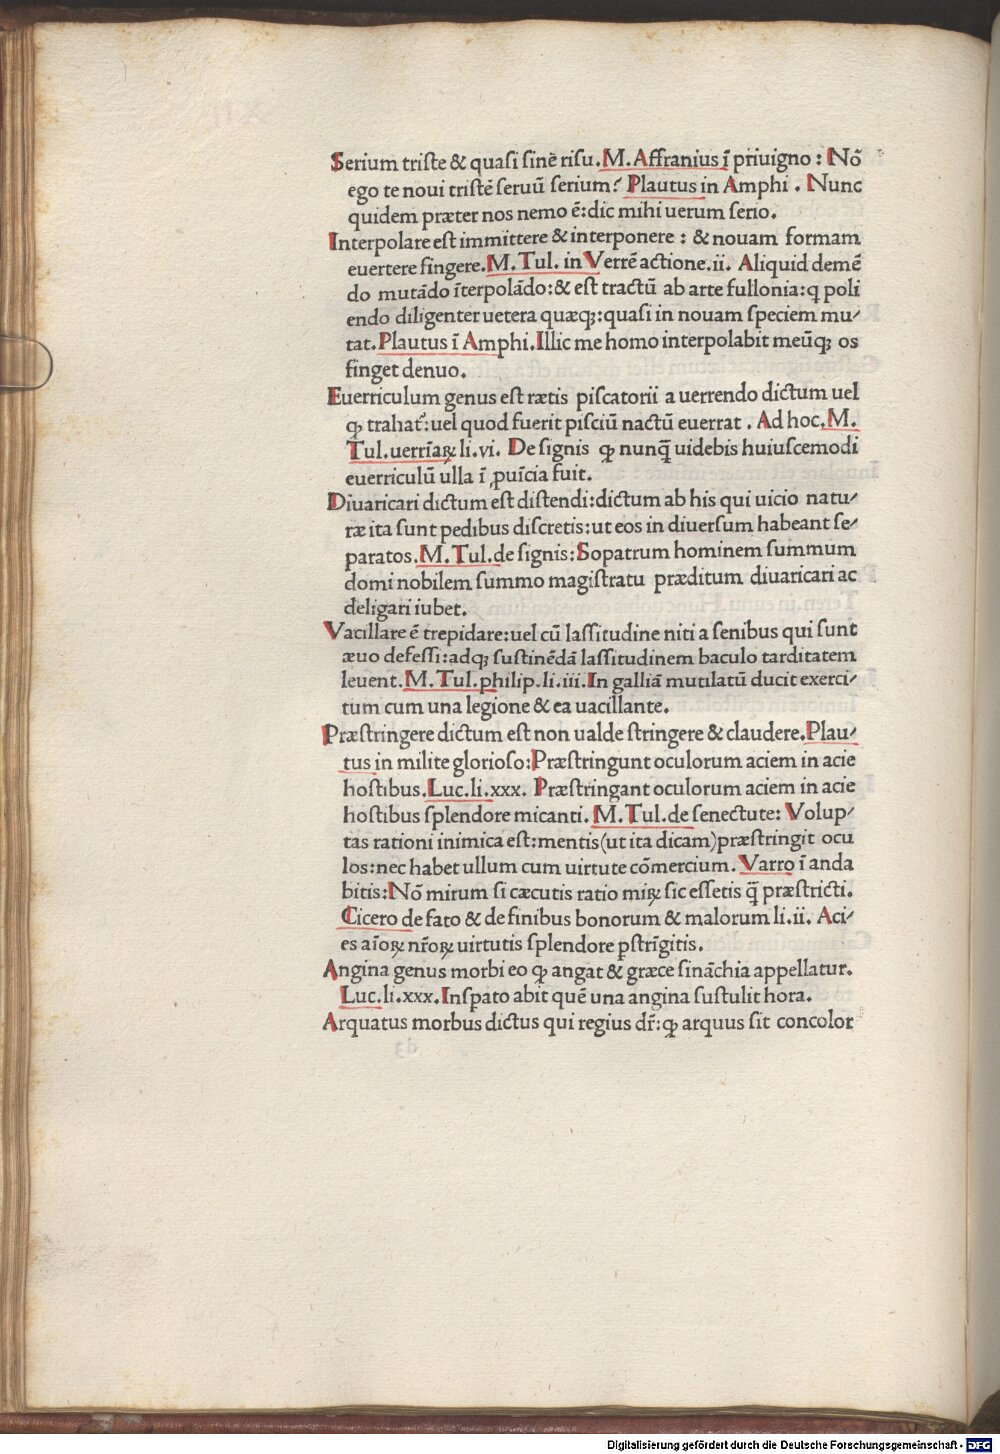 Serium triste & quasi sinē risu. M. Affranius ī priuigno: Nō
ego te noui tristē seruū serium? Plautus in Amphi. Nunc
quidem præter nos nemo ē: dic mihi uerum serio.
Interpolare est immittere & interponere: & nouam formam
euertere fingere. M. Tul. in Verrē actione. ii. Aliquid demē
do mutādo īterpolādo: & est tractū ab arte fullonia: q poli
endo diligenter uetera quæq;: quasi in nouam speciem mu⸗
tat. Plautus ī Amphi. Illic me homo interpolabit meūq; os
finget denuo.
Euerriculum genus est rætis piscatorii a uerrendo dictum uel
ꝙ trahat᷑: uel quod fuerit pisciū nactū euerrat. Ad hoc. M.
Tul. uerrīaꝝ li. vi. De signis ꝙ nunq̄ uidebis huiuscemodi
euerriculū ulla ī ꝓuīcia fuit.
Diuaricari dictum est distendi: dictum ab his qui uicio natu⸗
ræ ita sunt pedibus discretis: ut eos in diuersum habeant se⸗
paratos. M. Tul. de signis: Sopatrum hominem summum
domi nobilem summo magistratu præditum diuaricari ac
deligari iubet.
Vacillare ē trepidare: uel cū lassitudine niti a senibus qui sunt
æuo defessi: adq; sustinēdā lassitudinem baculo tarditatem
leuent. M. Tul. philip. li. iii. In galliā mutilatū ducit exerci⸗
tum cum una legione & ea uacillante.
Præstringere dictum est non ualde stringere & claudere. Plau⸗
tus in milite glorioso: Præstringunt oculorum aciem in acie
hostibus. Luc. li. xxx. Præstringant oculorum aciem in acie
hostibus splendore micanti. M. Tul. de senectute: Volup⸗
tas rationi inimica est: mentis (ut ita dicam) præstringit ocu
los: nec habet ullum cum uirtute cōmercium. Varro ī anda
bitis: Nō mirum si cæcutis ratio miꝝ sic essetis q̄ præstricti.
Cicero de fato & de finibus bonorum & malorum li. ii. Aci⸗
es aīoꝝ nr̄oꝝ uirtutis splendore ꝑstrīgitis.
Angina genus morbi eo ꝙ angat & græce sināchia appellatur.
Luc. li. xxx. Inspato abit quē una angina sustulit hora.
Arquatus morbus dictus qui regius dr̄: ꝙ arquus sit concolor
Digitalisierung gefördert durch die Deutsche Forschungsgemeinschaft - DFG